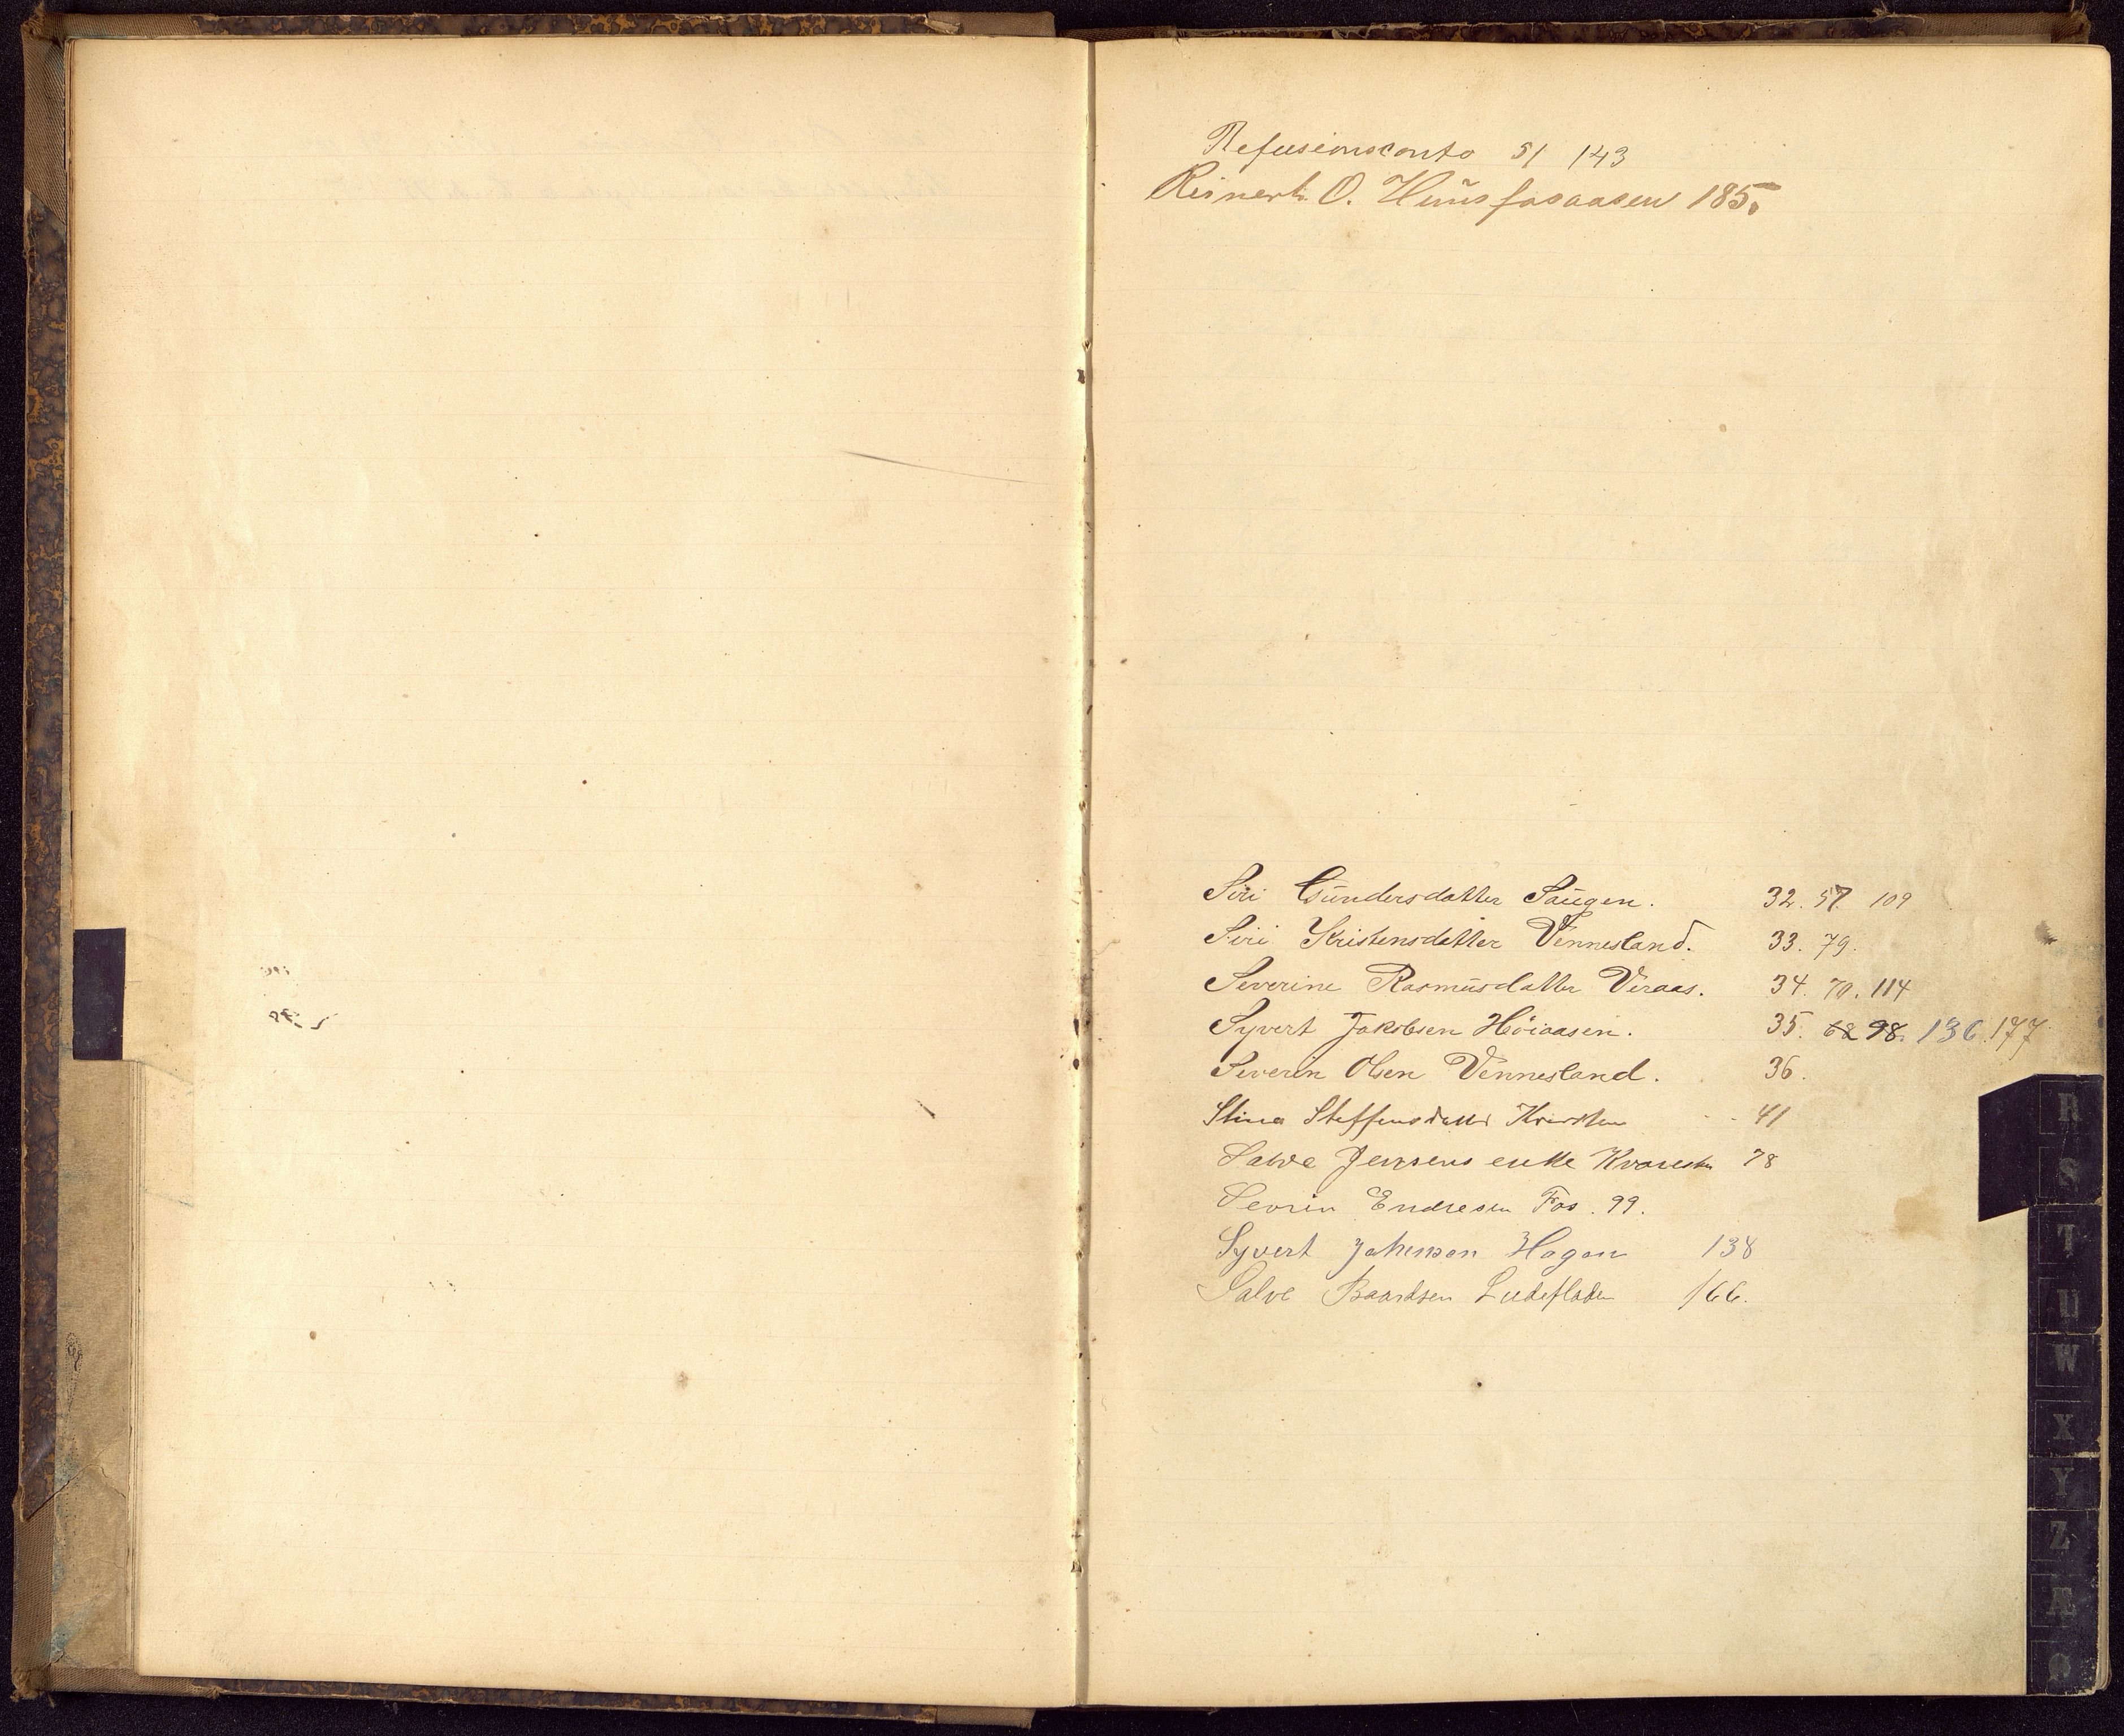 Refusionsconto 51 143
Reinert O. Huusfosaasen 185.
Siri Gundersdatter Saugen. 32. 57. 109
Siri Kristensdatter Vennesland. 33. 79.
Severine Rasmusdatter Veraas. 34. 70. 114
Syvert Jakobsen Höiaasen. 35. 68 98. 136. 177
Severin Olsen Vennesland. 36.
Stina Steffensdatter - - 41
Salve Jensens enke 78
Sevrin Endresen Fos. 99.
Syvert Johnson Hagen 138
Salve Baardsen Ludefladen 166.
R
S
T
U
W
X
Y
Z
Æ
Ø